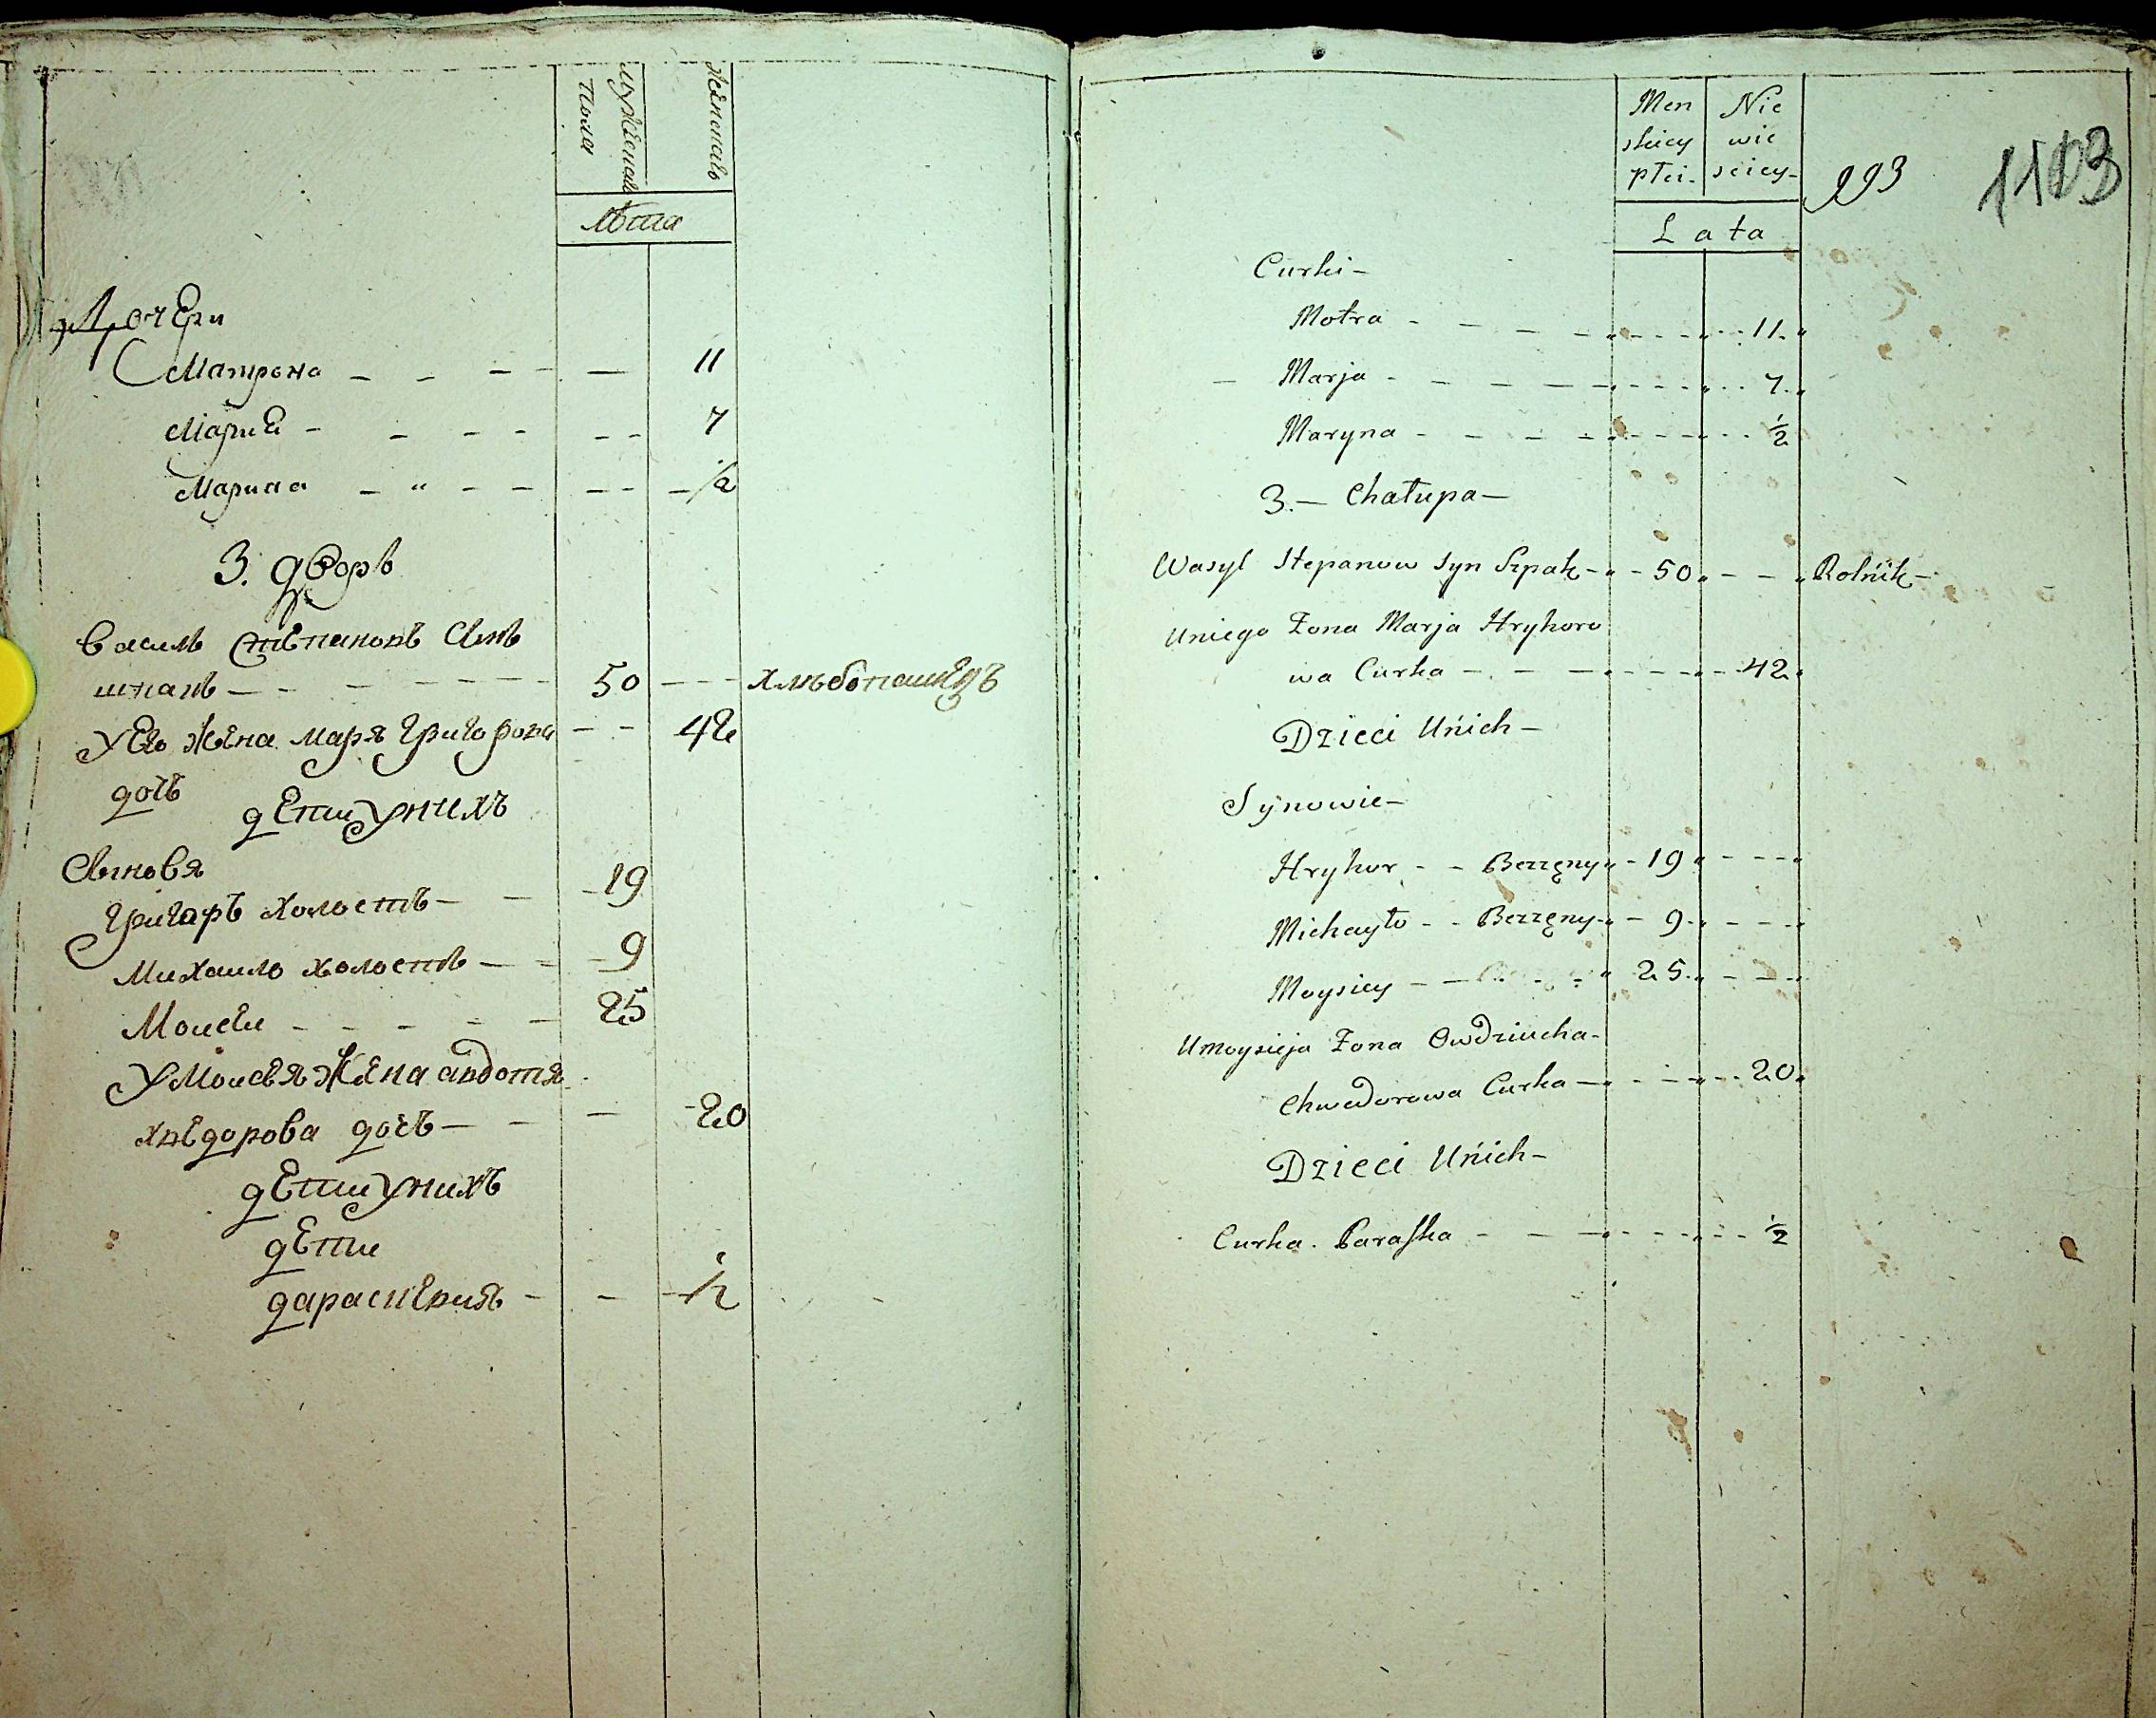 мужескаго
пола
женскаго
лѣта
Дочери
Матрона - - - - — 11
Марие - - - - - - 7
Марина - " - - - - ½
3. дворъ
Василь Степановъ Синъ
шпакъ - - - - - 50 - - - хлѣбопашецъ
У Его Жена Маря Григорова - - 42
дочь
дети У нихъ
Синовя
Григоръ холостъ — - 19
Михаило холостъ — - 9
Моисеи - - - - - 25
У Моисея Жена авдотя
хведорова дочь — - — 20
дети У нихъ
дети
Men Nie
skiey wie
płci. sciey
293
1103
Lata
Curki -
Motra - - - - - - - 11.
Marja - - - - - - - 7.
Maryna - - - - - - - ½
3. — Chałupa —
Wasyl Stepanow Syn Szpak - - 50 - - - Rolnik -
Uniego Żona Marja Hryhoro
wa Curka - - - - - - 42
Dzieci Unich -
Synowie -
Hryhor - - Bezzęny - 19 - - -
Michayło - - Bezzęny - 9 - - -
Moysiey - - - - 25 - - -
Umoysieja Żona Owdziucha -
Chwedorowa Curka — - - - 20
Dzieci Unich -
Curka. Paraska - - - - - - ½